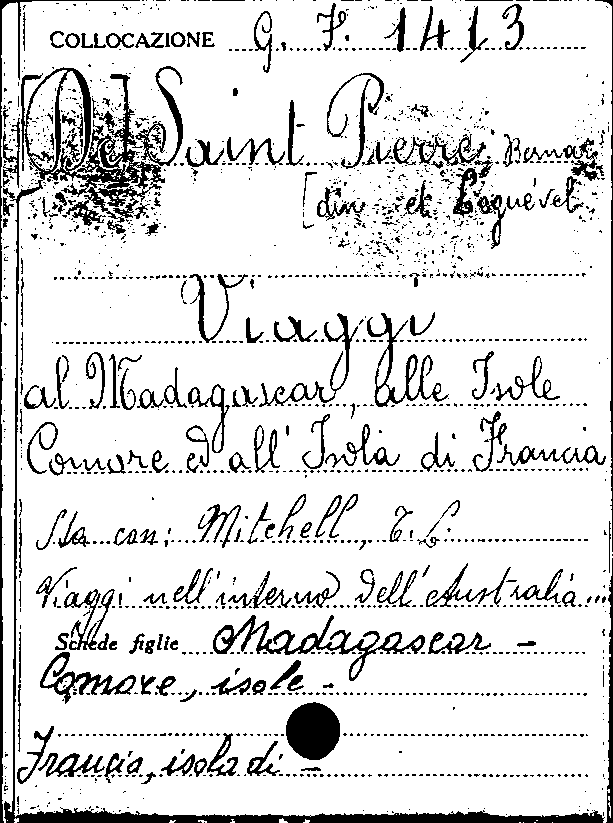 COLLOCAZIONE G. F. 1413
[De] Saint Pierre, Bernar
[din et Leguével
Viaggi
al Madagascar, alle Isole
Comore ed all' Isola di Francia
Sta con: Mitchell, T. L.
Viaggi nell'interno dell'Australia...
Schede figlie Madagascar -
Comore, isole -
Francia, isola di -